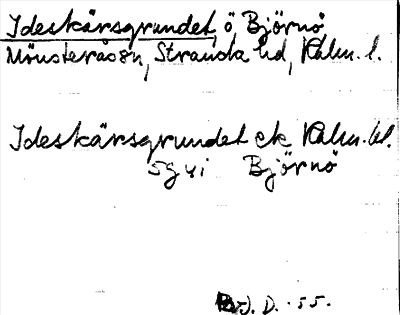 Ideskärsgrundet, ö Björnö
Mönsterås sn, Stranda hd, Kalm. l.
Ideskärsgrundet ek Kalm. bl.
5g4i Björnö
D. -55.